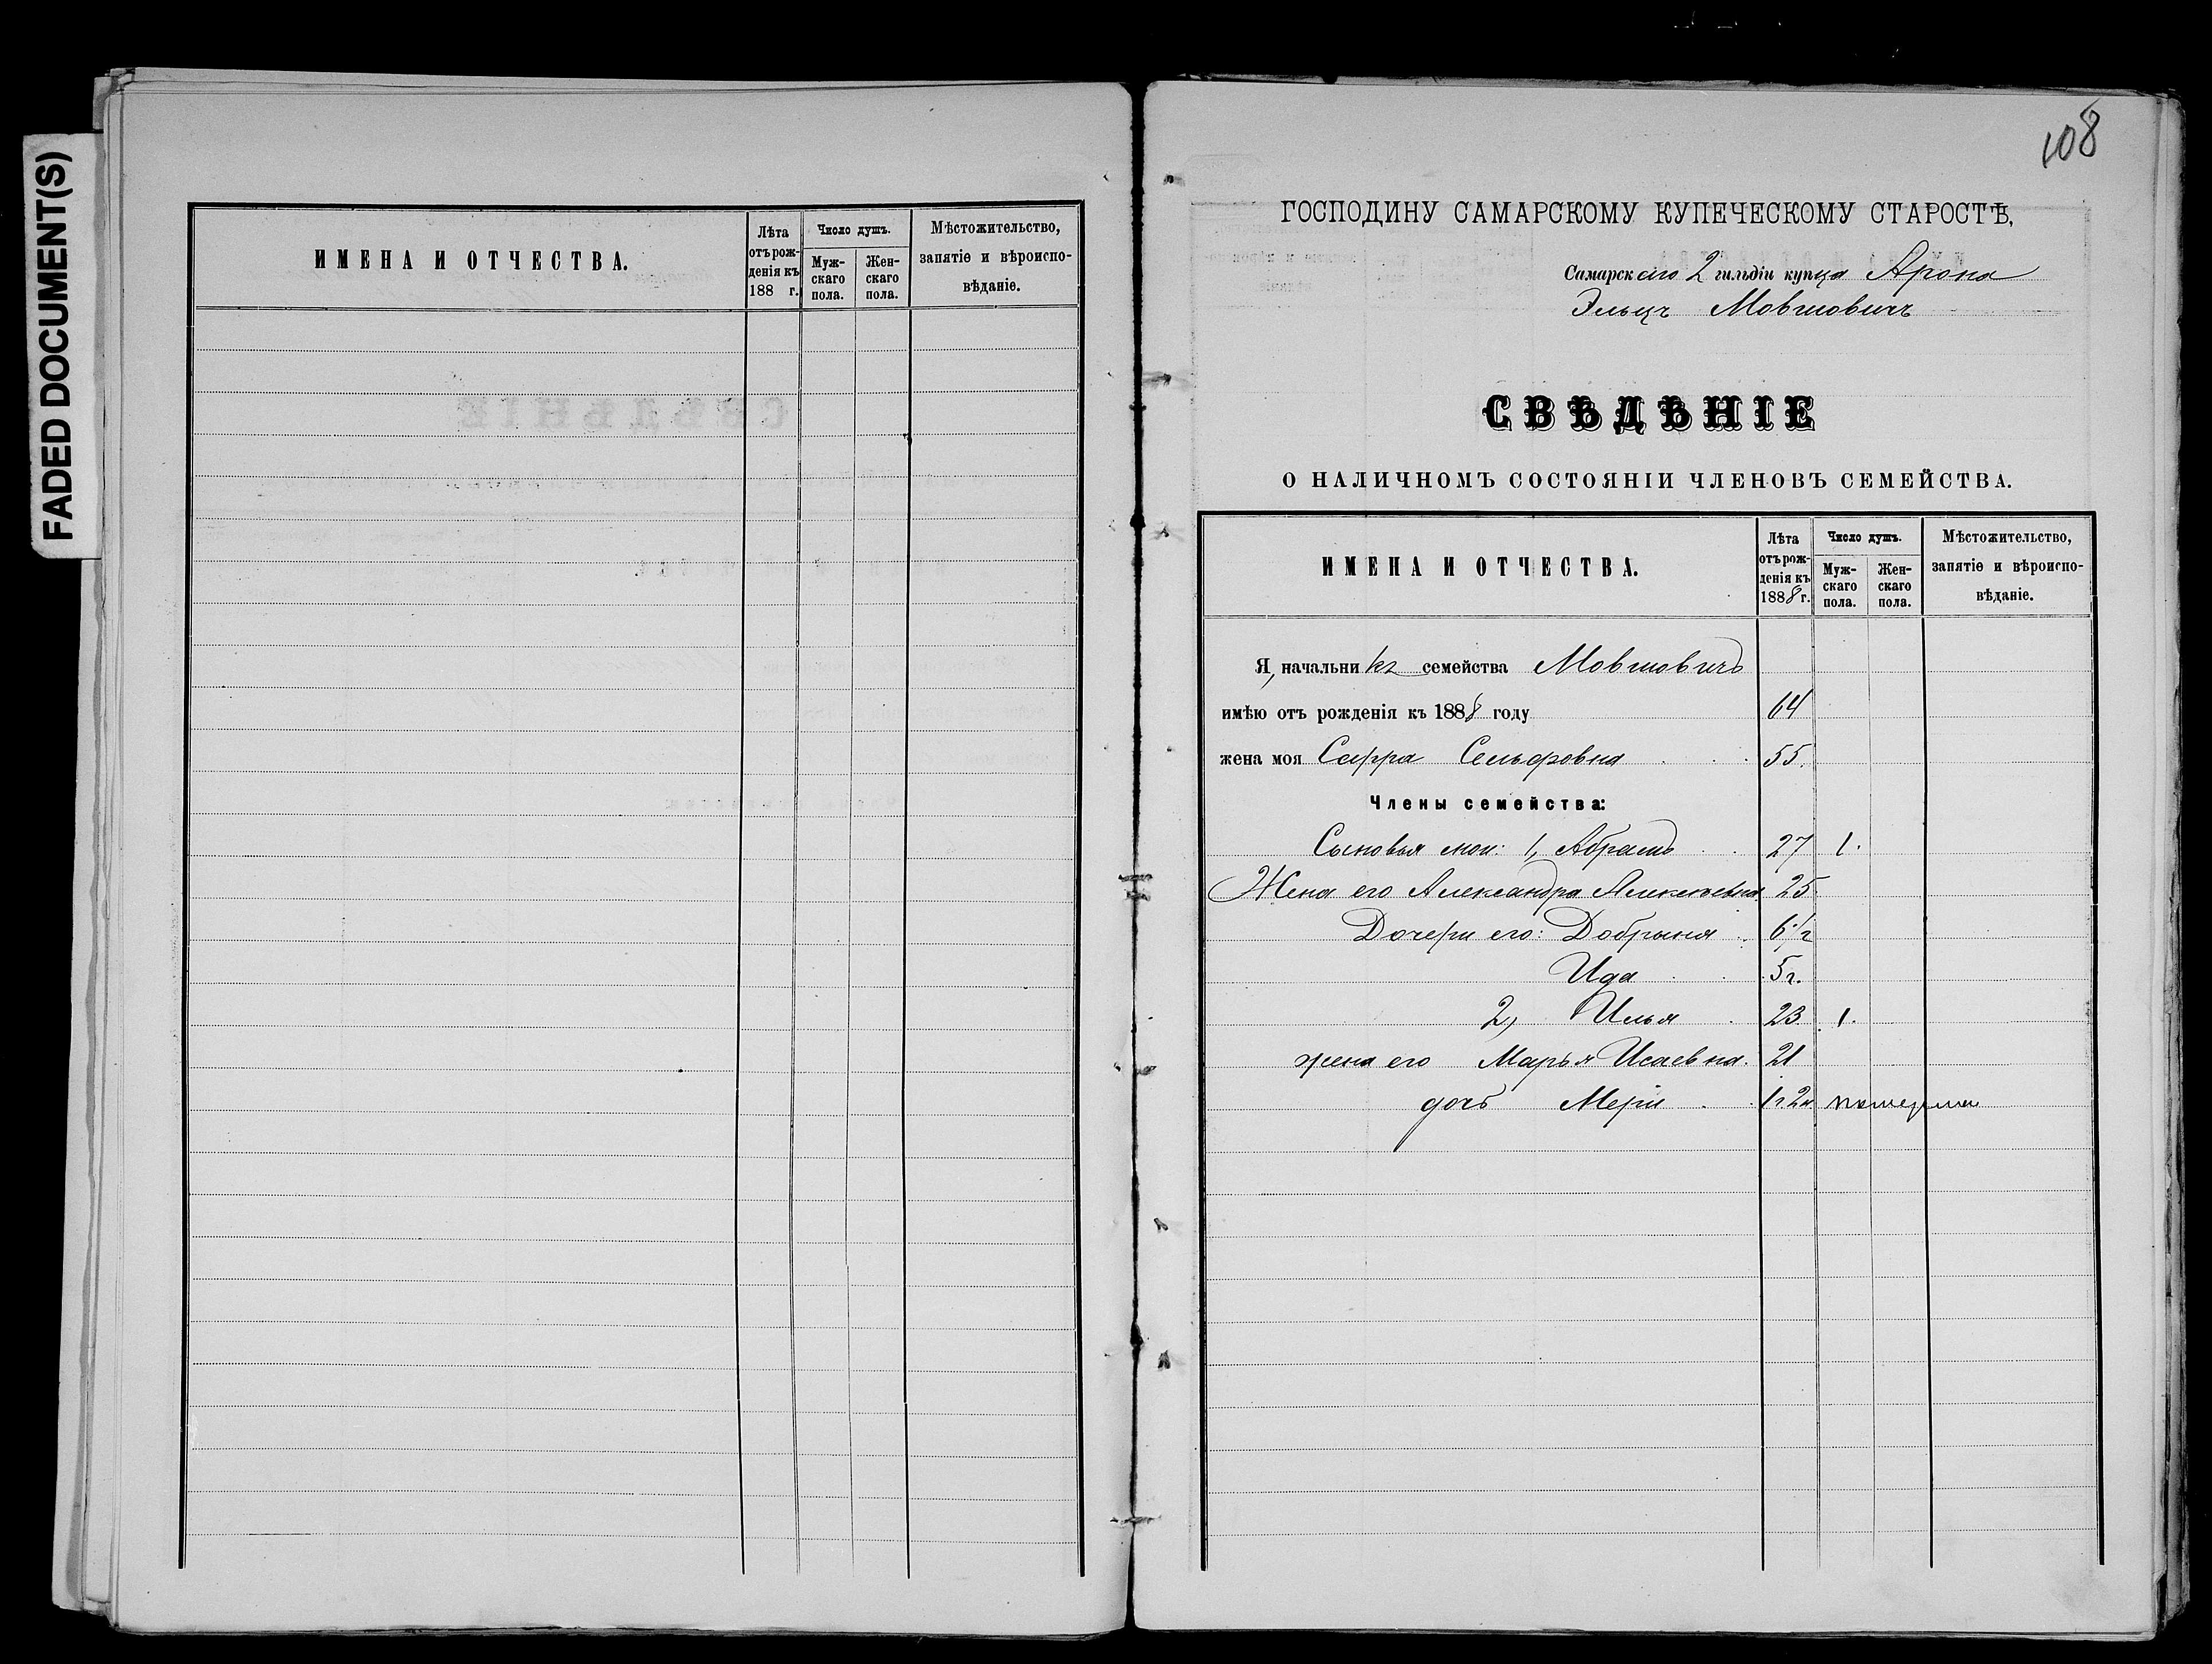 FADED DOCUMENT(S)
ИМЕНА И ОТЧЕСТВА.
Лѣта
отъ рож-
денія къ
188 г.
Число душъ.
Муж-
скаго
пола.
Жен-
скаго
пола.
Мѣстожительство,
запятіе и вѣроиспо-
вѣданіе.
108
ГОСПОДИНУ САМАРСКОМУ КУПЕЧЕСКОМУ СТАРОСТѢ,
Самарскаго 2 гильдіи купца Арона
Эльцъ Мовшовичъ
СВѢДѢНІЕ
О НАЛИЧНОМЪ СОСТОЯНІИ ЧЛЕНОВЪ СЕМЕЙСТВА.
ИМЕНА И ОТЧЕСТВА.
Лѣта
отъ рож-
денія къ
1888 г.
Число душъ.
Муж-
скаго
пола.
Жен-
скаго
пола.
Мѣстожительство,
запятіе и вѣроиспо-
вѣданіе.
Я, начальникъ семейства Мовшовичъ
имѣю отъ рожденія къ 1888 году 64
жена моя Сарра 55.
Члены семейства:
Сыновья мои: 1, Абрамъ 27 1.
Жена его Александра 25
Дочери его: Добрыня 6 1/2
Ида 5 г.
2, Илья 23 1.
жена его Марья Исаевна. 21
дочь Мери 1 г. 2 м.